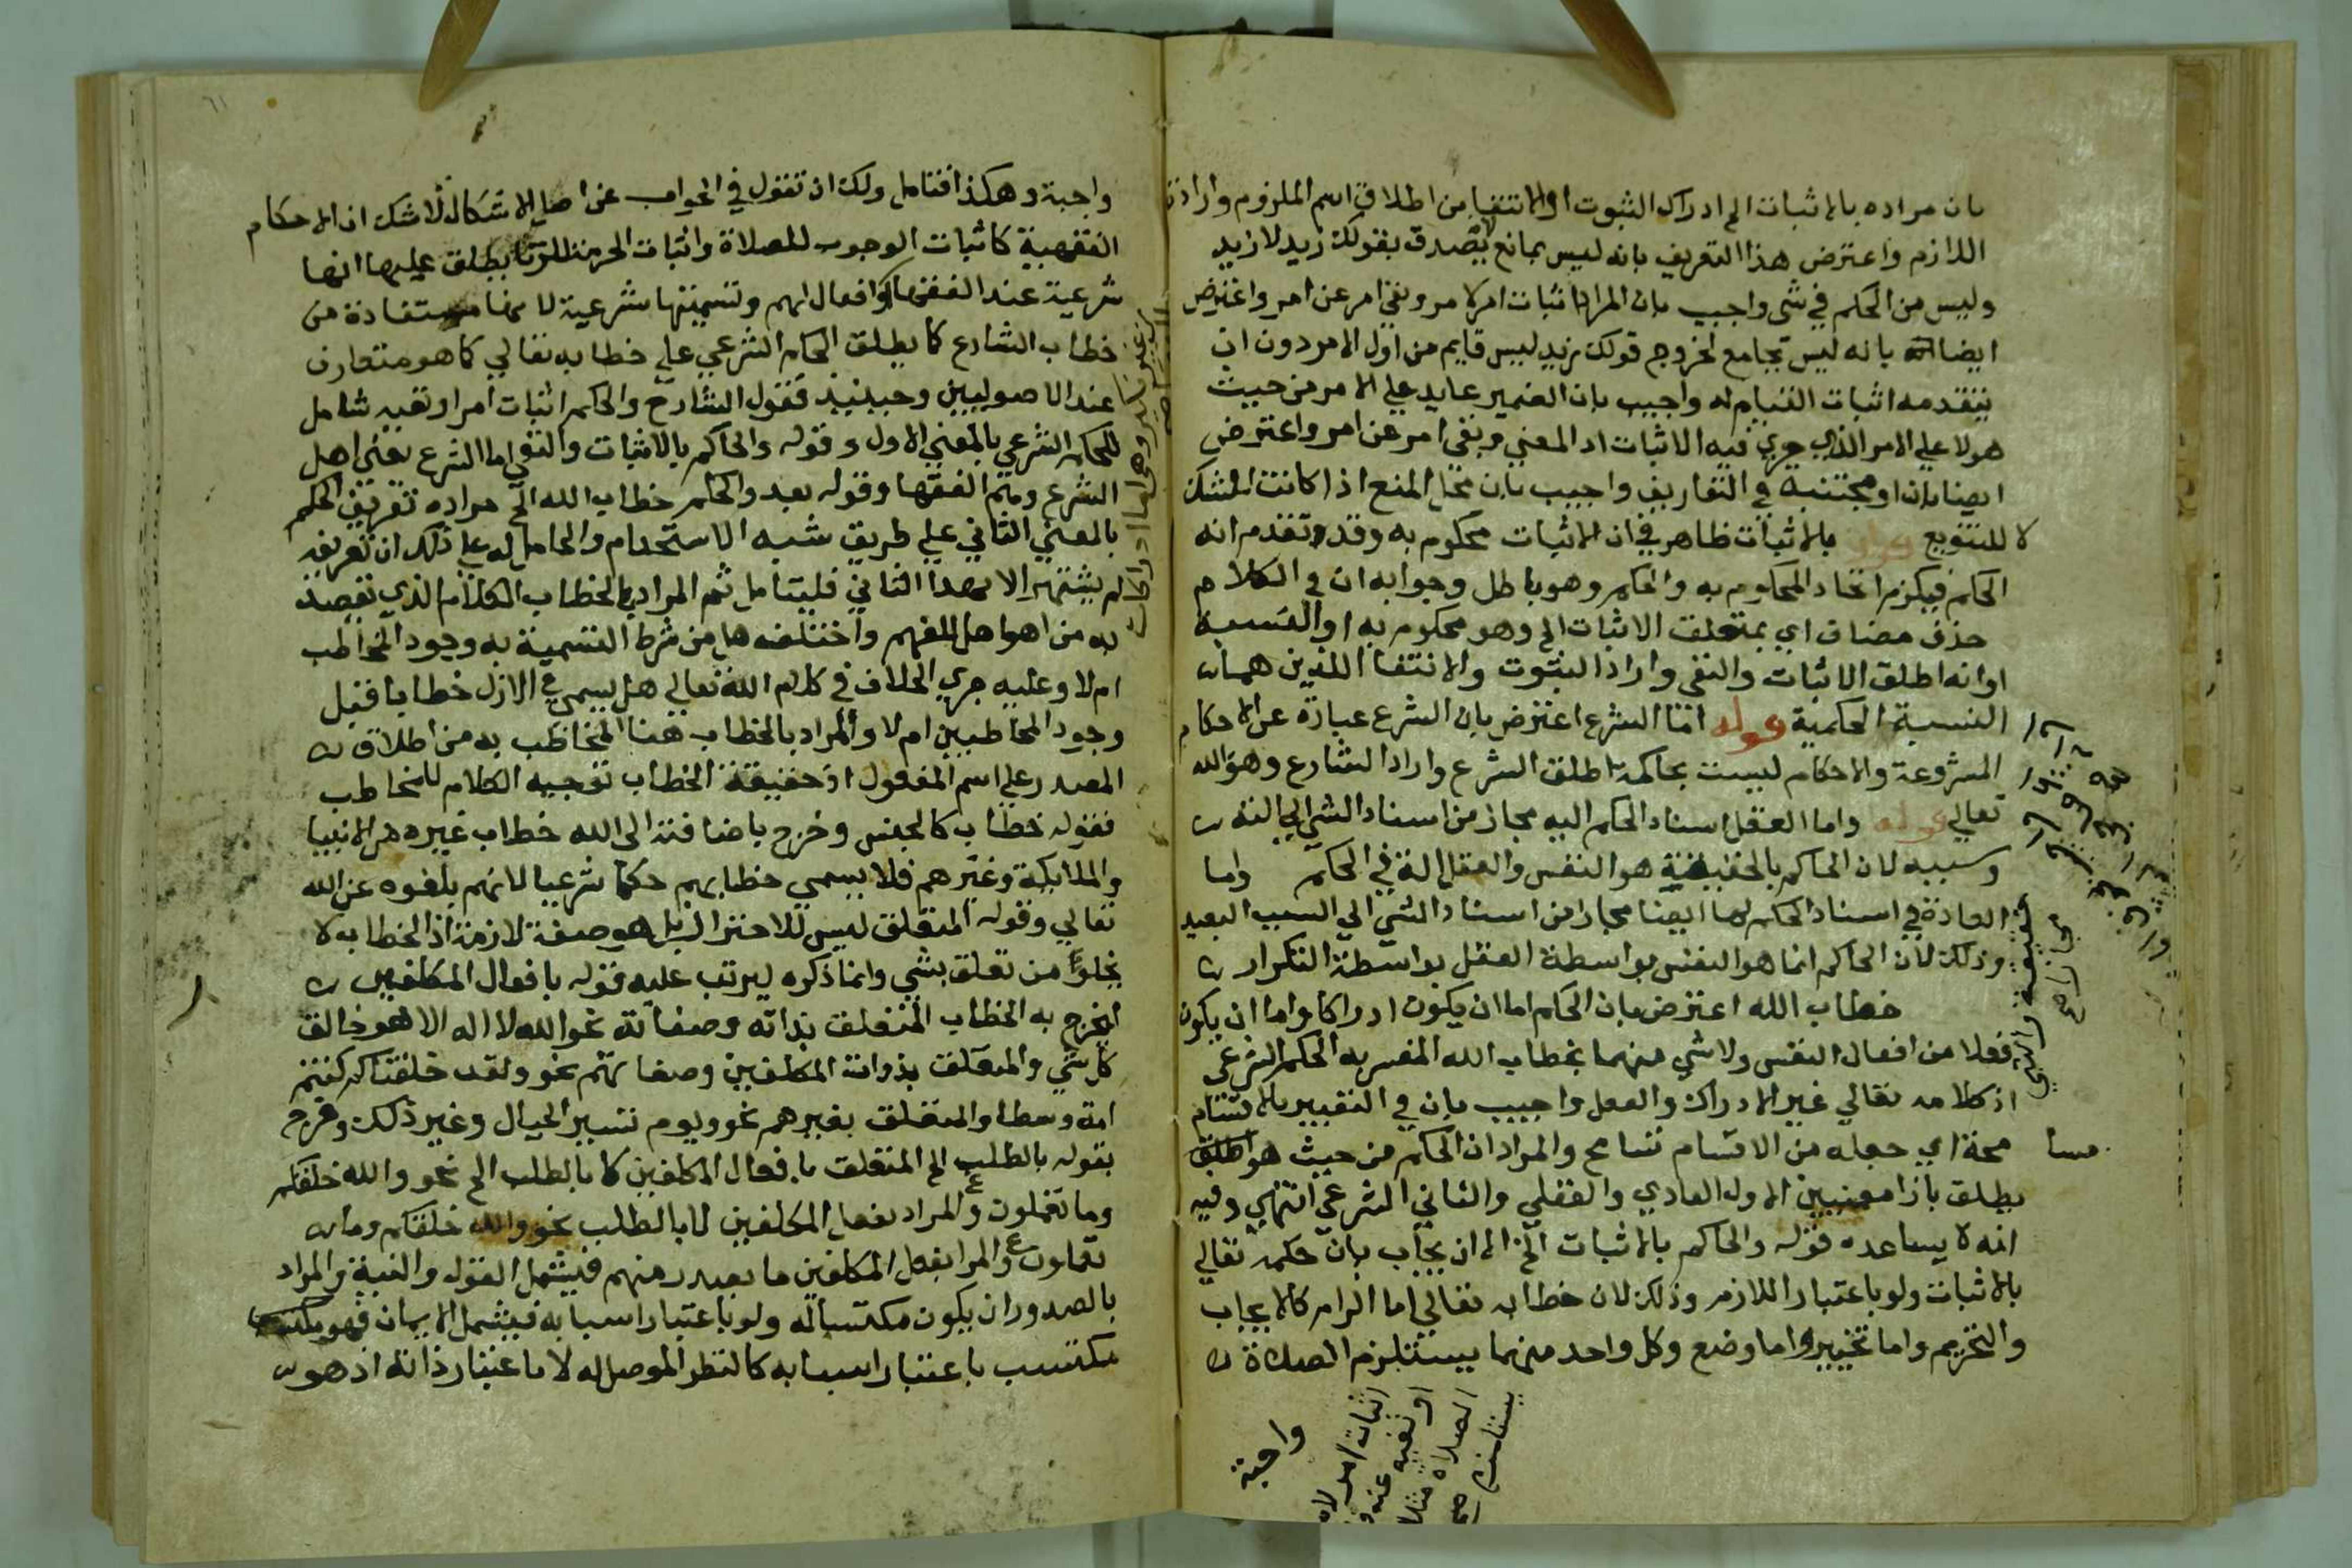 بان مراده بالاثبات الى ادراك الثبوت او الانتفا من اطلاق اسم الملزوم وارادة
اللازم واعترض هذا التعريف بانه ليس بمانع لانه يصدق بقولك زيد لا زيد
وليس من الحكم في شي واجيب بان المراد اثبات امر لامر ونفي امر عن امر واعترض
ايضا بانه ليس بجامع لخروج قولك زيد ليس قايم من اول الامر دون ان
يتقدمه اثبات القيام له واجيب بان الضمير عايد على الامر من حيث
هو لا على الامر الذي جري فيه الاثبات اذ المعني ونفي امر عن امر واعترض
ايضا بان او مجتنبه في التعاريف واجيب بان محل المنع اذا كانت للشك
لا للتنويع قوله بالاثبات ظاهر في ان الاثبات محكوم به وقد تقدم انه
الحكم فيلزم اتحاد المحكوم به والحكم وهو باطل وجوابه ان في الكلام
حذف مضاف اي بمتعلق الاثبات الى وهو محكوم به او النسبة
او انه اطلق الاثبات والنفي واراد الثبوت والانتفا اللذين هما
النسبة الحكمية قوله اما الشرع اعترض بان الشرع عبارة عن الاحكام
المشروعة والاحكام ليست بحاكمة اطلق الشرع واراد الشارع وهو الله
تعالي قوله واما العقل اسناد الحكم اليه مجاز من اسناد الشي الي الته
وسببه لان الحاكم بالحقيقة هو النفس والعقل الة في الحكم واما
العادة في اسناد الحكم لها ايضا مجاز من اسناد الشي الي السبب البعيد
وذلك لان الحاكم انما هو النفس بواسطة العقل بواسطة التكرار
خطاب الله اعترض بان الحكم اما ان يكون ادراكا واما ان يكون
فعلا من افعال النفس ولا شي منهما بخطاب الله المفسر به الحكم الشرعي
اذ كلامه تعالي غير الادراك والفعل واجيب بان في التعبير بالاقسام
محة اي جعله من الاقسام تسامح والمراد ان الحكم من حيث هو
يطلق بازا معنيين الاول العادي والعقلي والثاني الشرعي انتهي وفيه
انه لا يساعده قوله والحاكم بالاثبات الخ الا ان يجاب بان حكمه تعالي
بالاثبات ولو باعتبار اللازم وذلك لان خطابه تعالي اما الزام كالايجاب
والتحريم واما تخيير واما وضع وكل واحد منهما يستلزم الصلاة
مسا
يستلزم
الصلاة مثلا
او نفيه عنه
اثبات امر لامر
واجبة
٦١
واجبة وهكذا فتامل ولك ان تقول في الجواب عن اصل الاشكال لا شك ان الاحكام
الفقهية كاثبات الوجوب للصلاة واثبات الحرمة للزنا يطلق عليها انها
شرعية عند الفقها وافعالهم وتسميتها شرعية لانها مستفادة من
خطاب الشارع كما يطلق الحكم الشرعي على خطابه تعالي كما هو متعارف
عند الاصوليين وحينيذ فقول الشارح والحكم اثبات امر او نفيه شامل
للحكم الشرعي بالمعني الاول وقوله والحاكم بالاثبات والنفي اما الشرع يعني اهل
الشرع ومنهم الفقها وقوله بعد والحكم خطاب الله الخ مراده تعريف الحكم
بالمعني الثاني على طريق شبه الاستخدام والحامل له على ذلك ان تعريفه
لم يشتهر الا بهذا الثاني فليتامل ثم المراد بالخطاب الكلام الذي يقصد
به من اهو اهل للفهم واختلف هل من شرط التسمية به وجود المخاطب
ام لا وعليه جري الخلاف في كلام الله تعالي هل يسمي في الازل خطابا قبل
وجود المخاطبين ام لا والمراد بالخطاب هنا المخاطب به من اطلاق
المصدر على اسم المفعول اذ حقيقة الخطاب توجيه الكلام للمخاطب
فقوله خطاب كالجنس وخرج باضافته الى الله خطاب غيره من الانبيا
والملايكة وغيرهم فلا يسمي خطابهم حكما شرعيا لانهم بلغوه عن الله
تعالي وقوله المتعلق ليس للاحتراز بل هو صفة لازمة اذ الخطاب لا
يخلو من تعلق بشي وانما ذكره ليرتب عليه قوله بافعال المكلفين
ليخرج به الخطاب المتعلق بذاته وصفاته نحو الله لا اله الا هو خالق
كل شي والمتعلق بذوات المكلفين وصفاتهم نحو ولقد خلقناكم كنتم
امة وسطا والمتعلق بغيرهم نحو ويوم نسير الجبال وغير ذلك وخرج
بقوله بالطلب الخ المتعلق بافعال المكلفين لا بالطلب الخ نحو والله خلقكم
وما تعملون والمراد بفعل المكلفين لا بالطلب نحو والله خلقكم وما
تعملون والمراد بفعل المكلفين ما يصدر منهم فيشمل القول والنية والمراد
بالصدور ان يكون مكتسبا له ولو باعتبار اسبابه فيشمل الايمان فهو
مكتسب باعتبار اسبابه كالنظر الموصل له لا باعتبار ذاته اذ هو